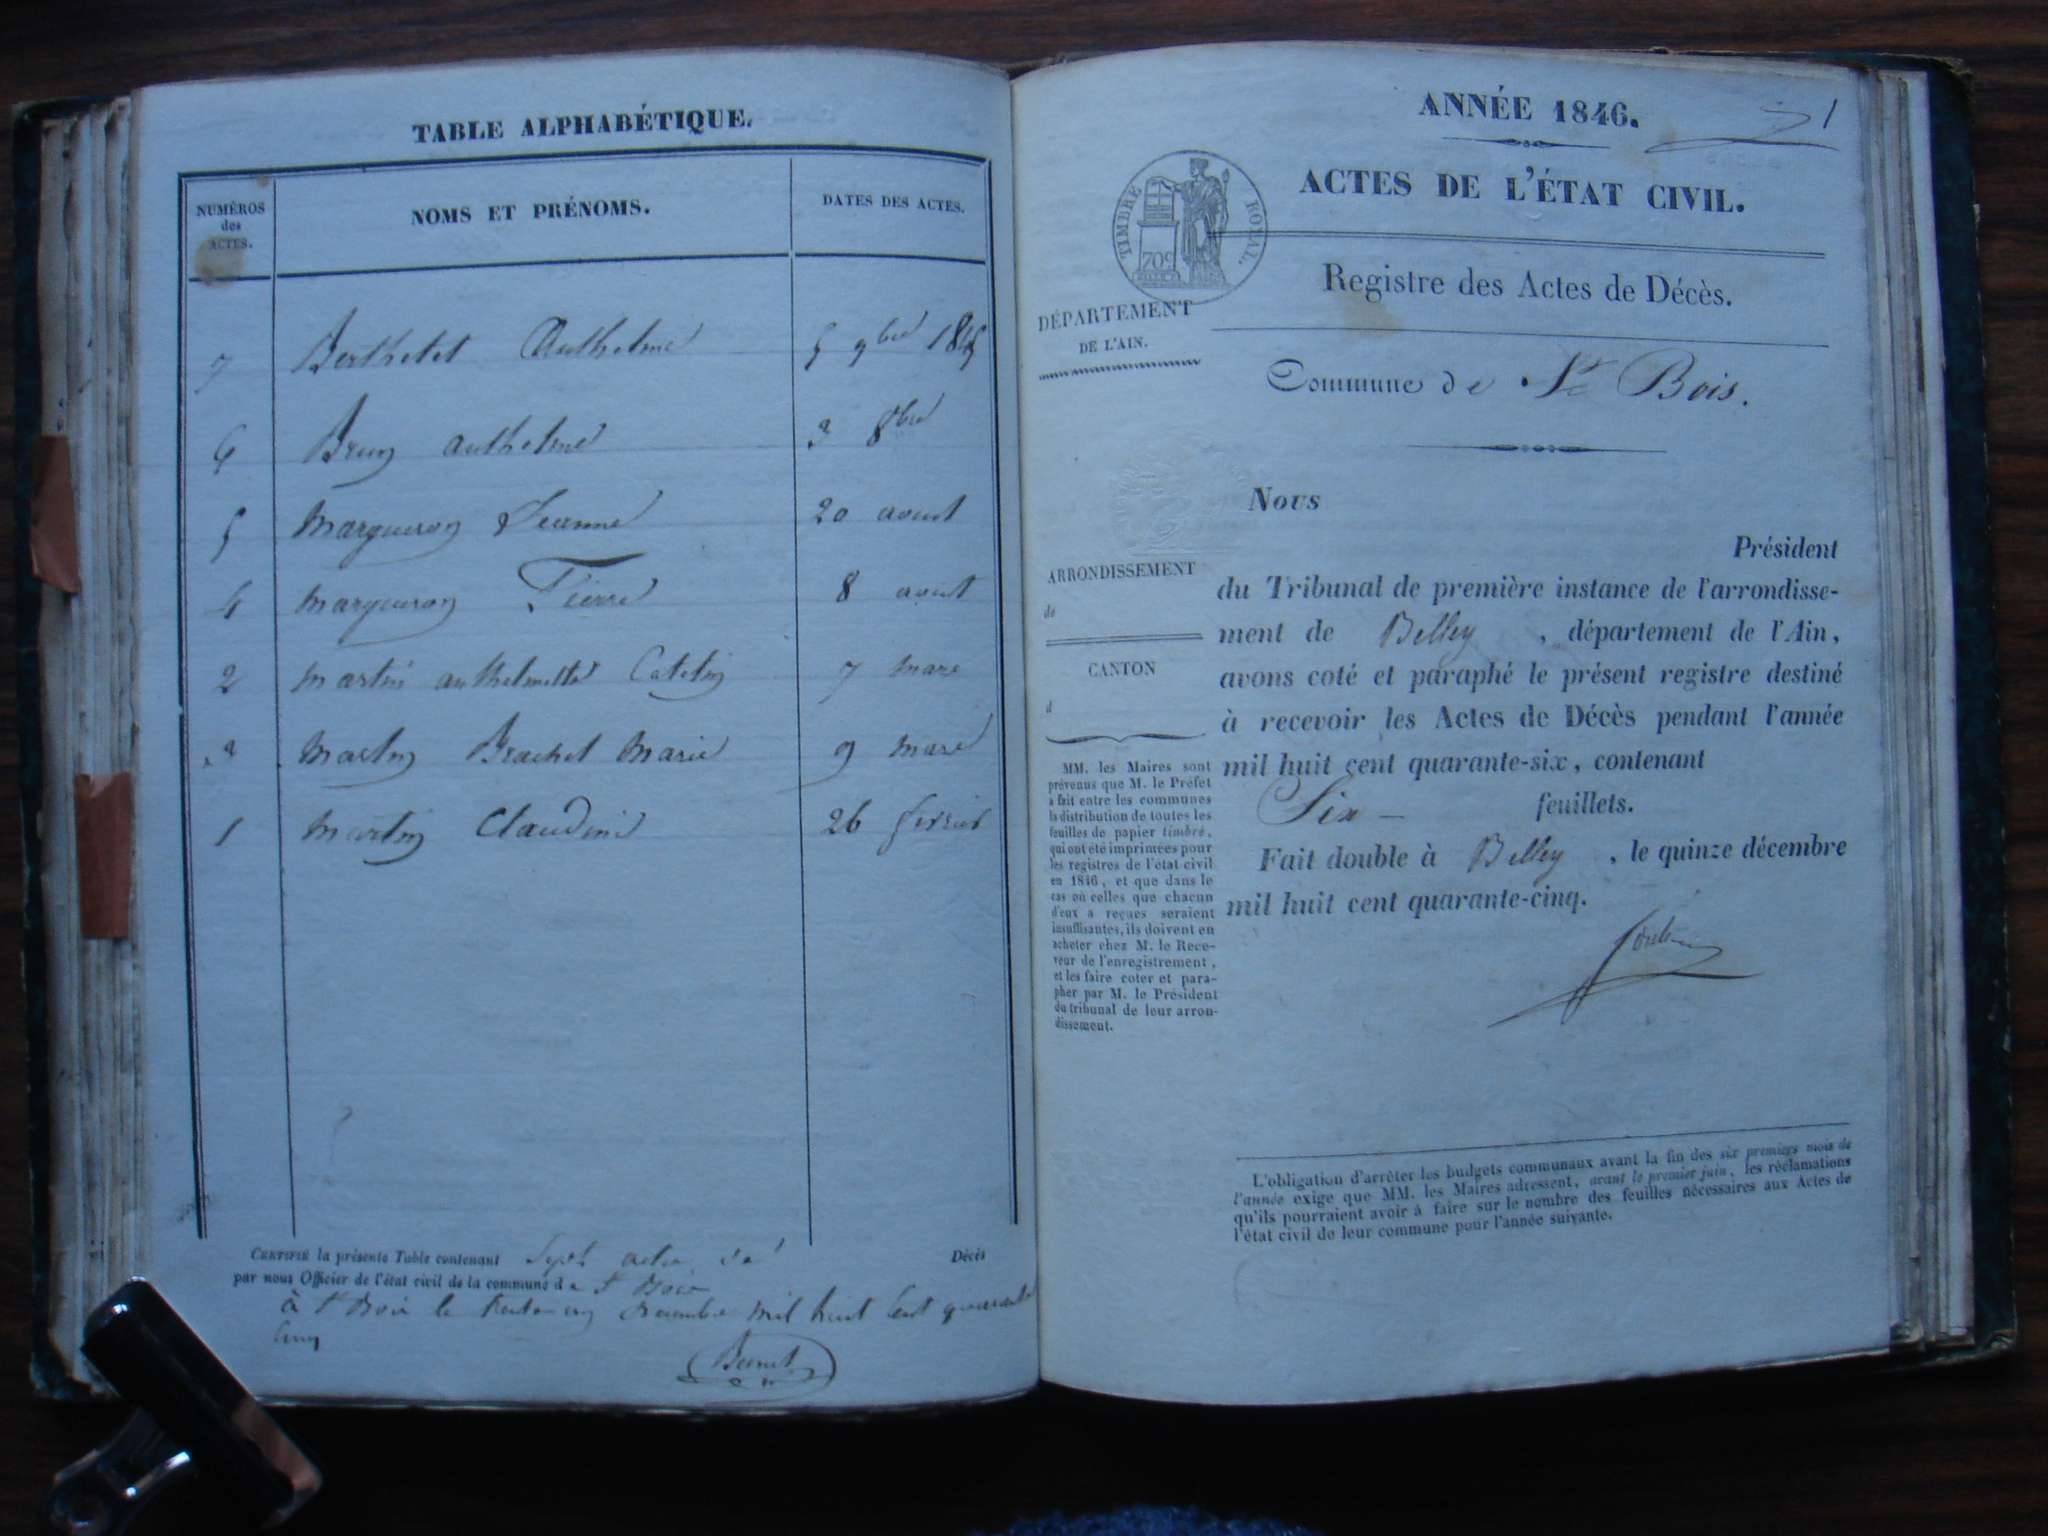 TABLE ALPHABÉTIQUE.
NUMÉROS
des
ACTES.
NOMS ET PRÉNOMS.
DATES DES ACTES.
7 Berthelet Anthelme 5 9bre 1845
6 Brun anthelme 3 8bre
5 Margueron Jeanne 20 aout
4 Margueron Pierre 8 aout
2 Martin anthelmette Catelin 7 mars
3 Martin Brachet Marie 9 mars
1 Martin Claudine 26 fevrier
CERTIFIÉ la présente Table contenant Sept actes de Décès
par nous Officier de l'état civil de la commune de St Bois
à St Bois le trente un decembre mil huit cent quarante
cinq
ANNÉE 1846.
1
ACTES DE L'ÉTAT CIVIL.
TIMBRE ROYAL.
Registre des Actes de Décès.
DÉPARTEMENT
DE L'AIN.
Commune de St Bois.
Nous
Président
du Tribunal de première instance de l'arrondisse-
ment de Belley, département de l'Ain,
avons coté et paraphé le présent registre destiné
à recevoir les Actes de Décès pendant l'année
mil huit cent quarante-six, contenant
Six feuillets.
Fait double à Belley, le quinze décembre
mil huit cent quarante-cinq.
ARRONDISSEMENT
de
CANTON
d
MM. les Maires sont
prévenus que M. le Préfet
a fait entre les communes
la distribution de toutes les
feuilles de papier timbré,
qui ont été imprimées pour
les registres de l'état civil
en 1846, et que dans le
cas où celles que chacun
d'eux a reçues seraient
insuffisantes, ils doivent en
acheter chez M. le Rece-
veur de l'enregistrement,
et les faire coter et para-
pher par M. le Président
du tribunal de leur arron-
dissement.
L'obligation d'arrêter les budgets communaux avant la fin des six premiers mois de
l'année exige que MM. les Maires adressent, avant le premier juin, les réclamations
qu'ils pourraient avoir à faire sur le nombre des feuilles nécessaires aux Actes de
l'état civil de leur commune pour l'année suivante.